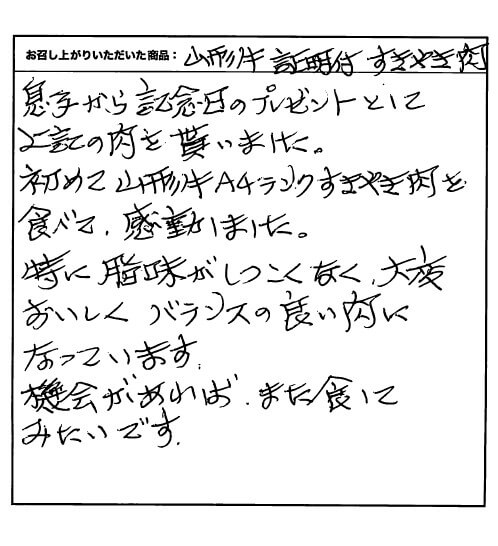 お召し上がりいただいた商品： 山形牛 証明付 すきやき肉
息子から記念日のプレゼントとして
上記の肉を貰いました。
初めて山形牛A4ランクすきやき肉を
食べて、感動しました。
特に脂味がしつこくなく、大変
おいしくバランスの良い肉に
なっています。
機会があれば、また食して
みたいです。